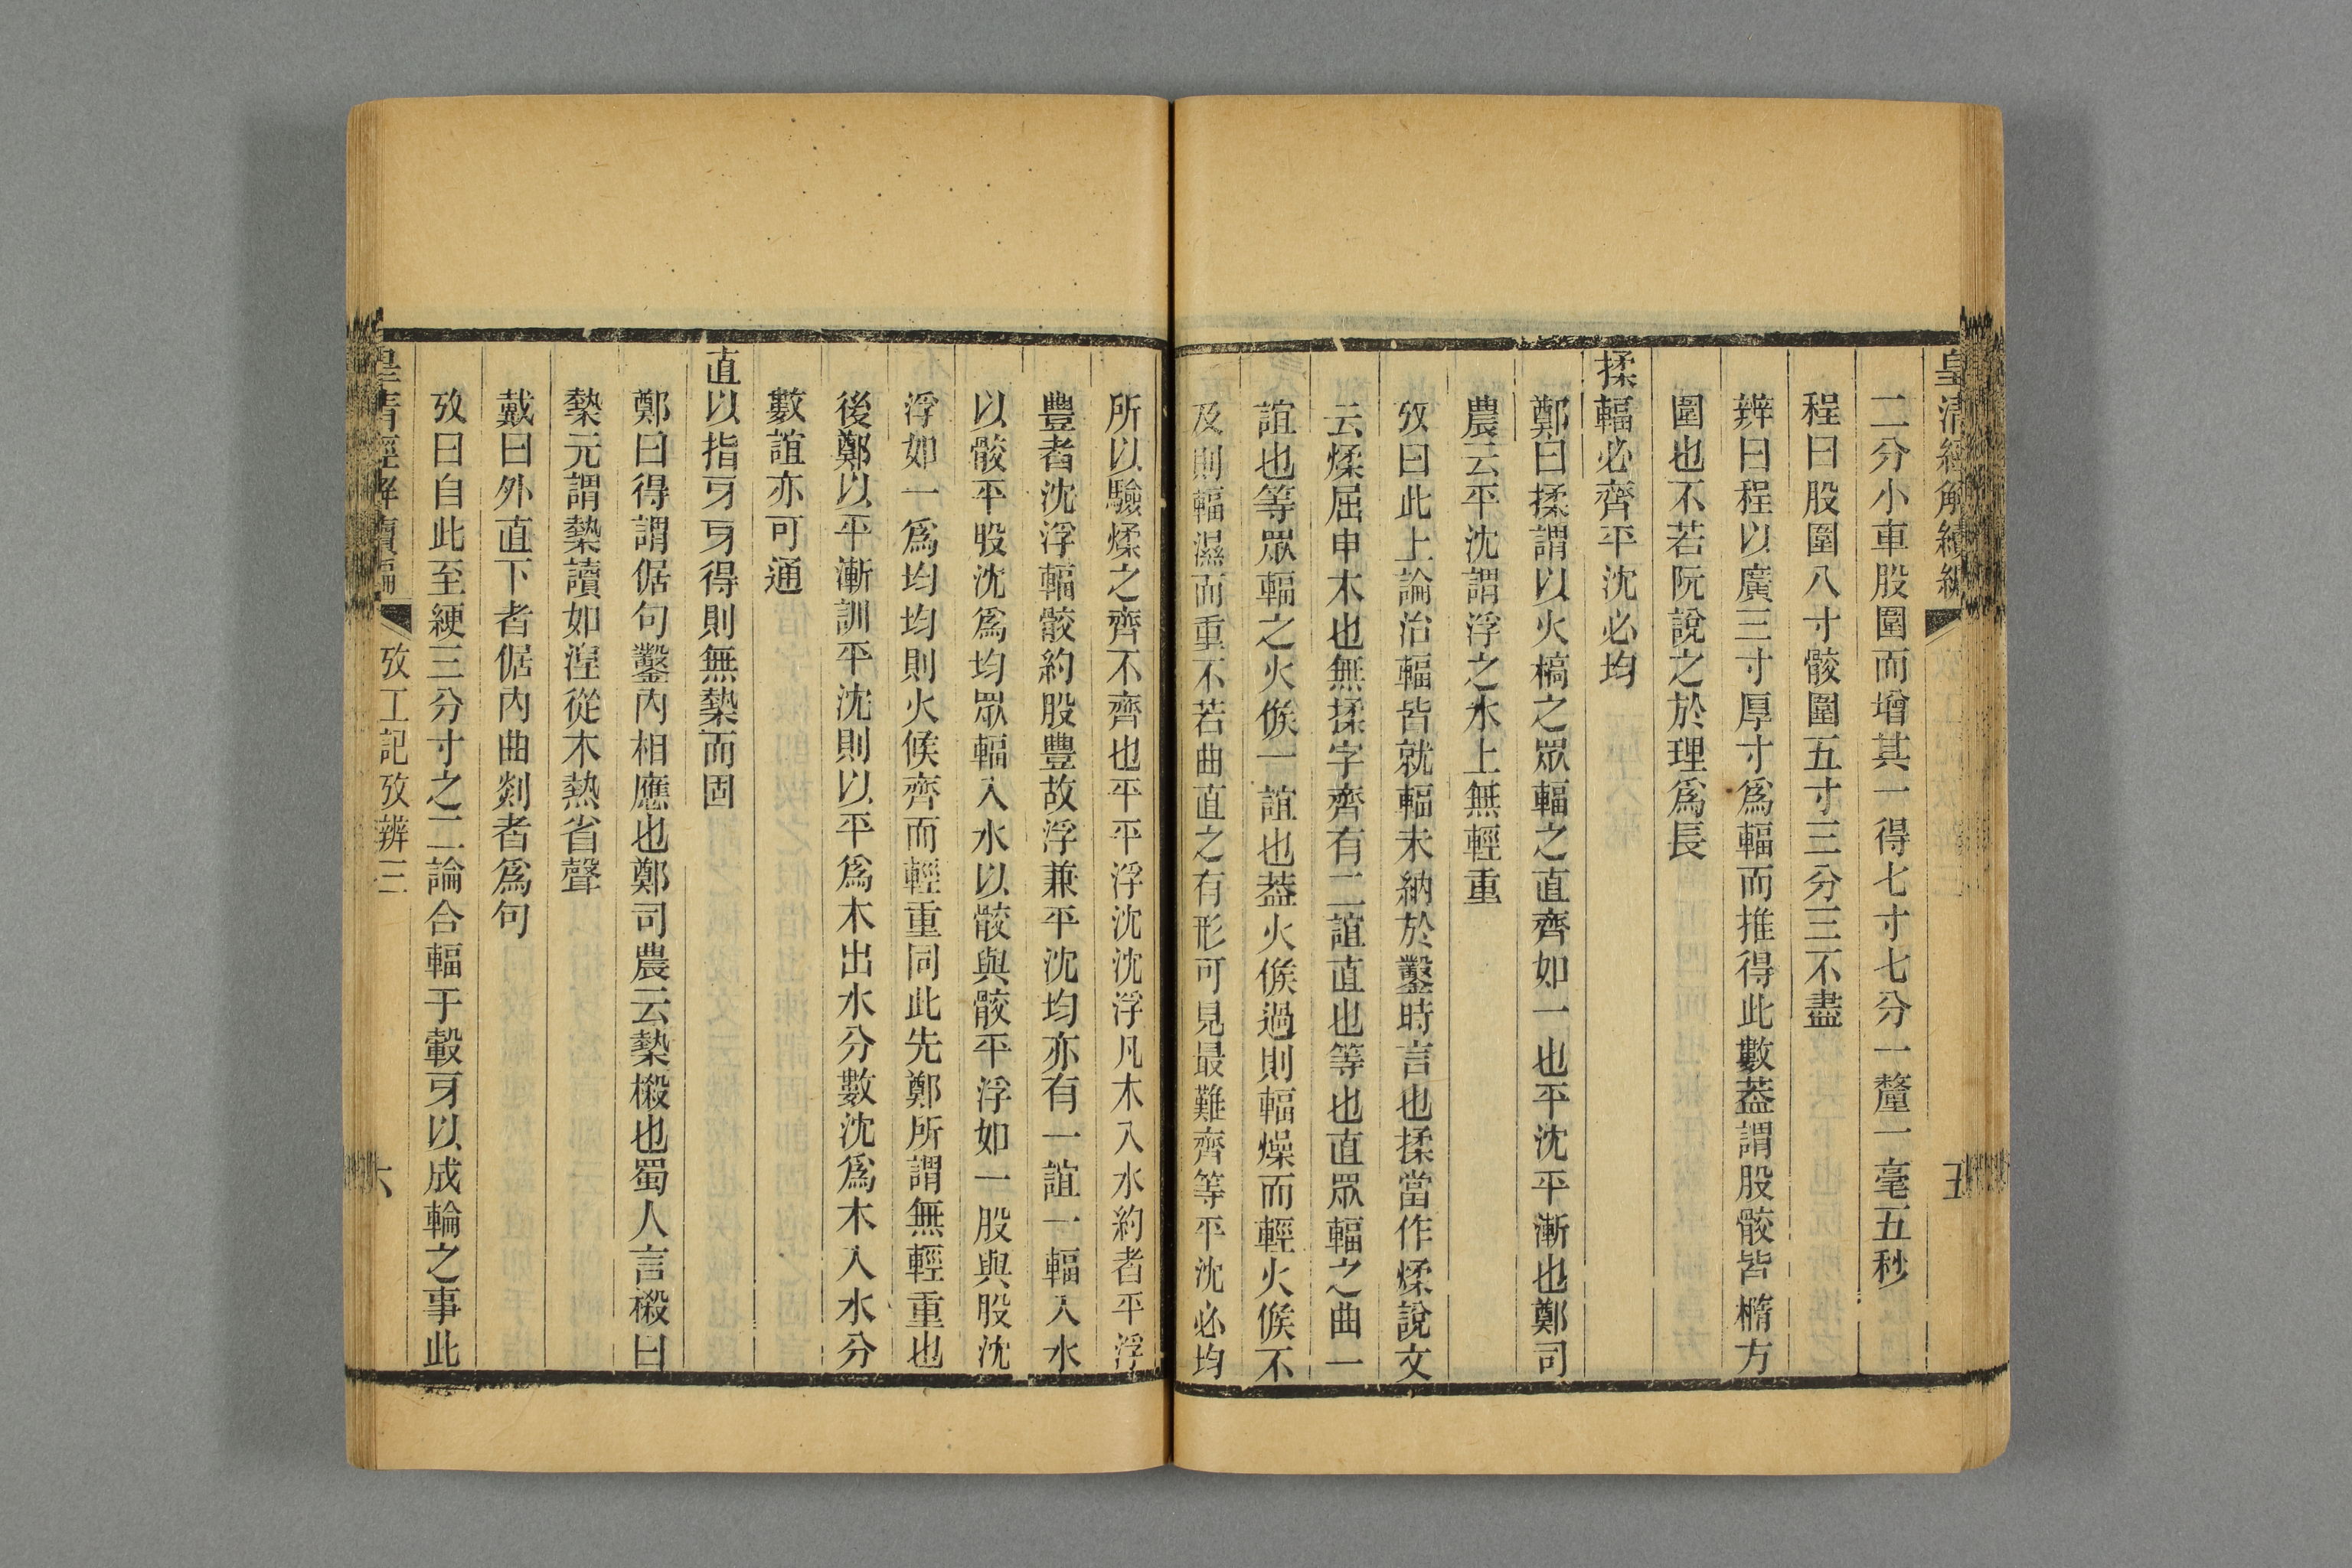 皇清經解續編 五
二分小車股圍而增其一得七寸七分一釐一毫五秒
程曰股圍八寸骹圍五寸三分三不盡
辨曰程以廣三寸厚寸爲輻而推得此數葢謂股骹皆橢方
圍也不若阮說之於理爲長
揉輻必齊平沈必均
鄭曰揉謂以火槁之眾輻之直齊如一也平沈平漸也鄭司
農云平沈謂浮之水上無輕重
攷曰此上論治輻皆就輻未納於鑿時言也揉當作煣說文
云煣屈申木也無揉字齊有二誼直也等也直眾輻之曲一
誼也等眾輻之火候一誼也葢火候過則輻燥而輕火候不
及則輻濕而重不若曲直之有形可見最難齊等平沈必均
所以驗煣之齊不齊也平平浮沈沈浮凡木入水約者平浮
豐者沈浮輻骹約股豐故浮兼平沈均亦有一誼一輻入水
以骹平股沈爲均眾輻入水以骹與骹平浮如一股與股沈
浮如一爲均均則火候齊而輕重同此先鄭所謂無輕重也
後鄭以平漸訓平沈則以平爲木出水分數沈爲木入水分
數誼亦可通
直以指牙牙得則無槷而固
鄭曰得謂倨句鑿內相應也鄭司農云槷樧也蜀人言樧曰
槷元謂槷讀如涅從木熱省聲
戴曰外直下者倨內曲剡者爲句
攷曰自此至綆三分寸之二論合輻于轂牙以成輪之事此
皇清經解續編 攷工記攷辨三 六